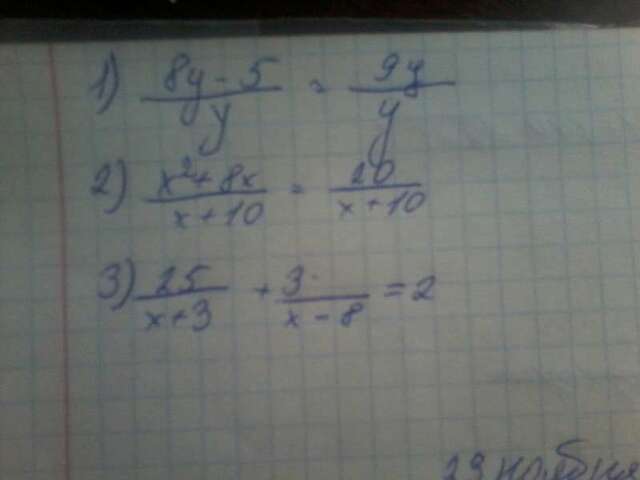 1) (8y - 5)/y = 9y/y
2) (x² + 8x)/(x + 10) = 20/(x + 10)
3) 25/(x + 3) + 3/(x - 8) = 2
29 ноября